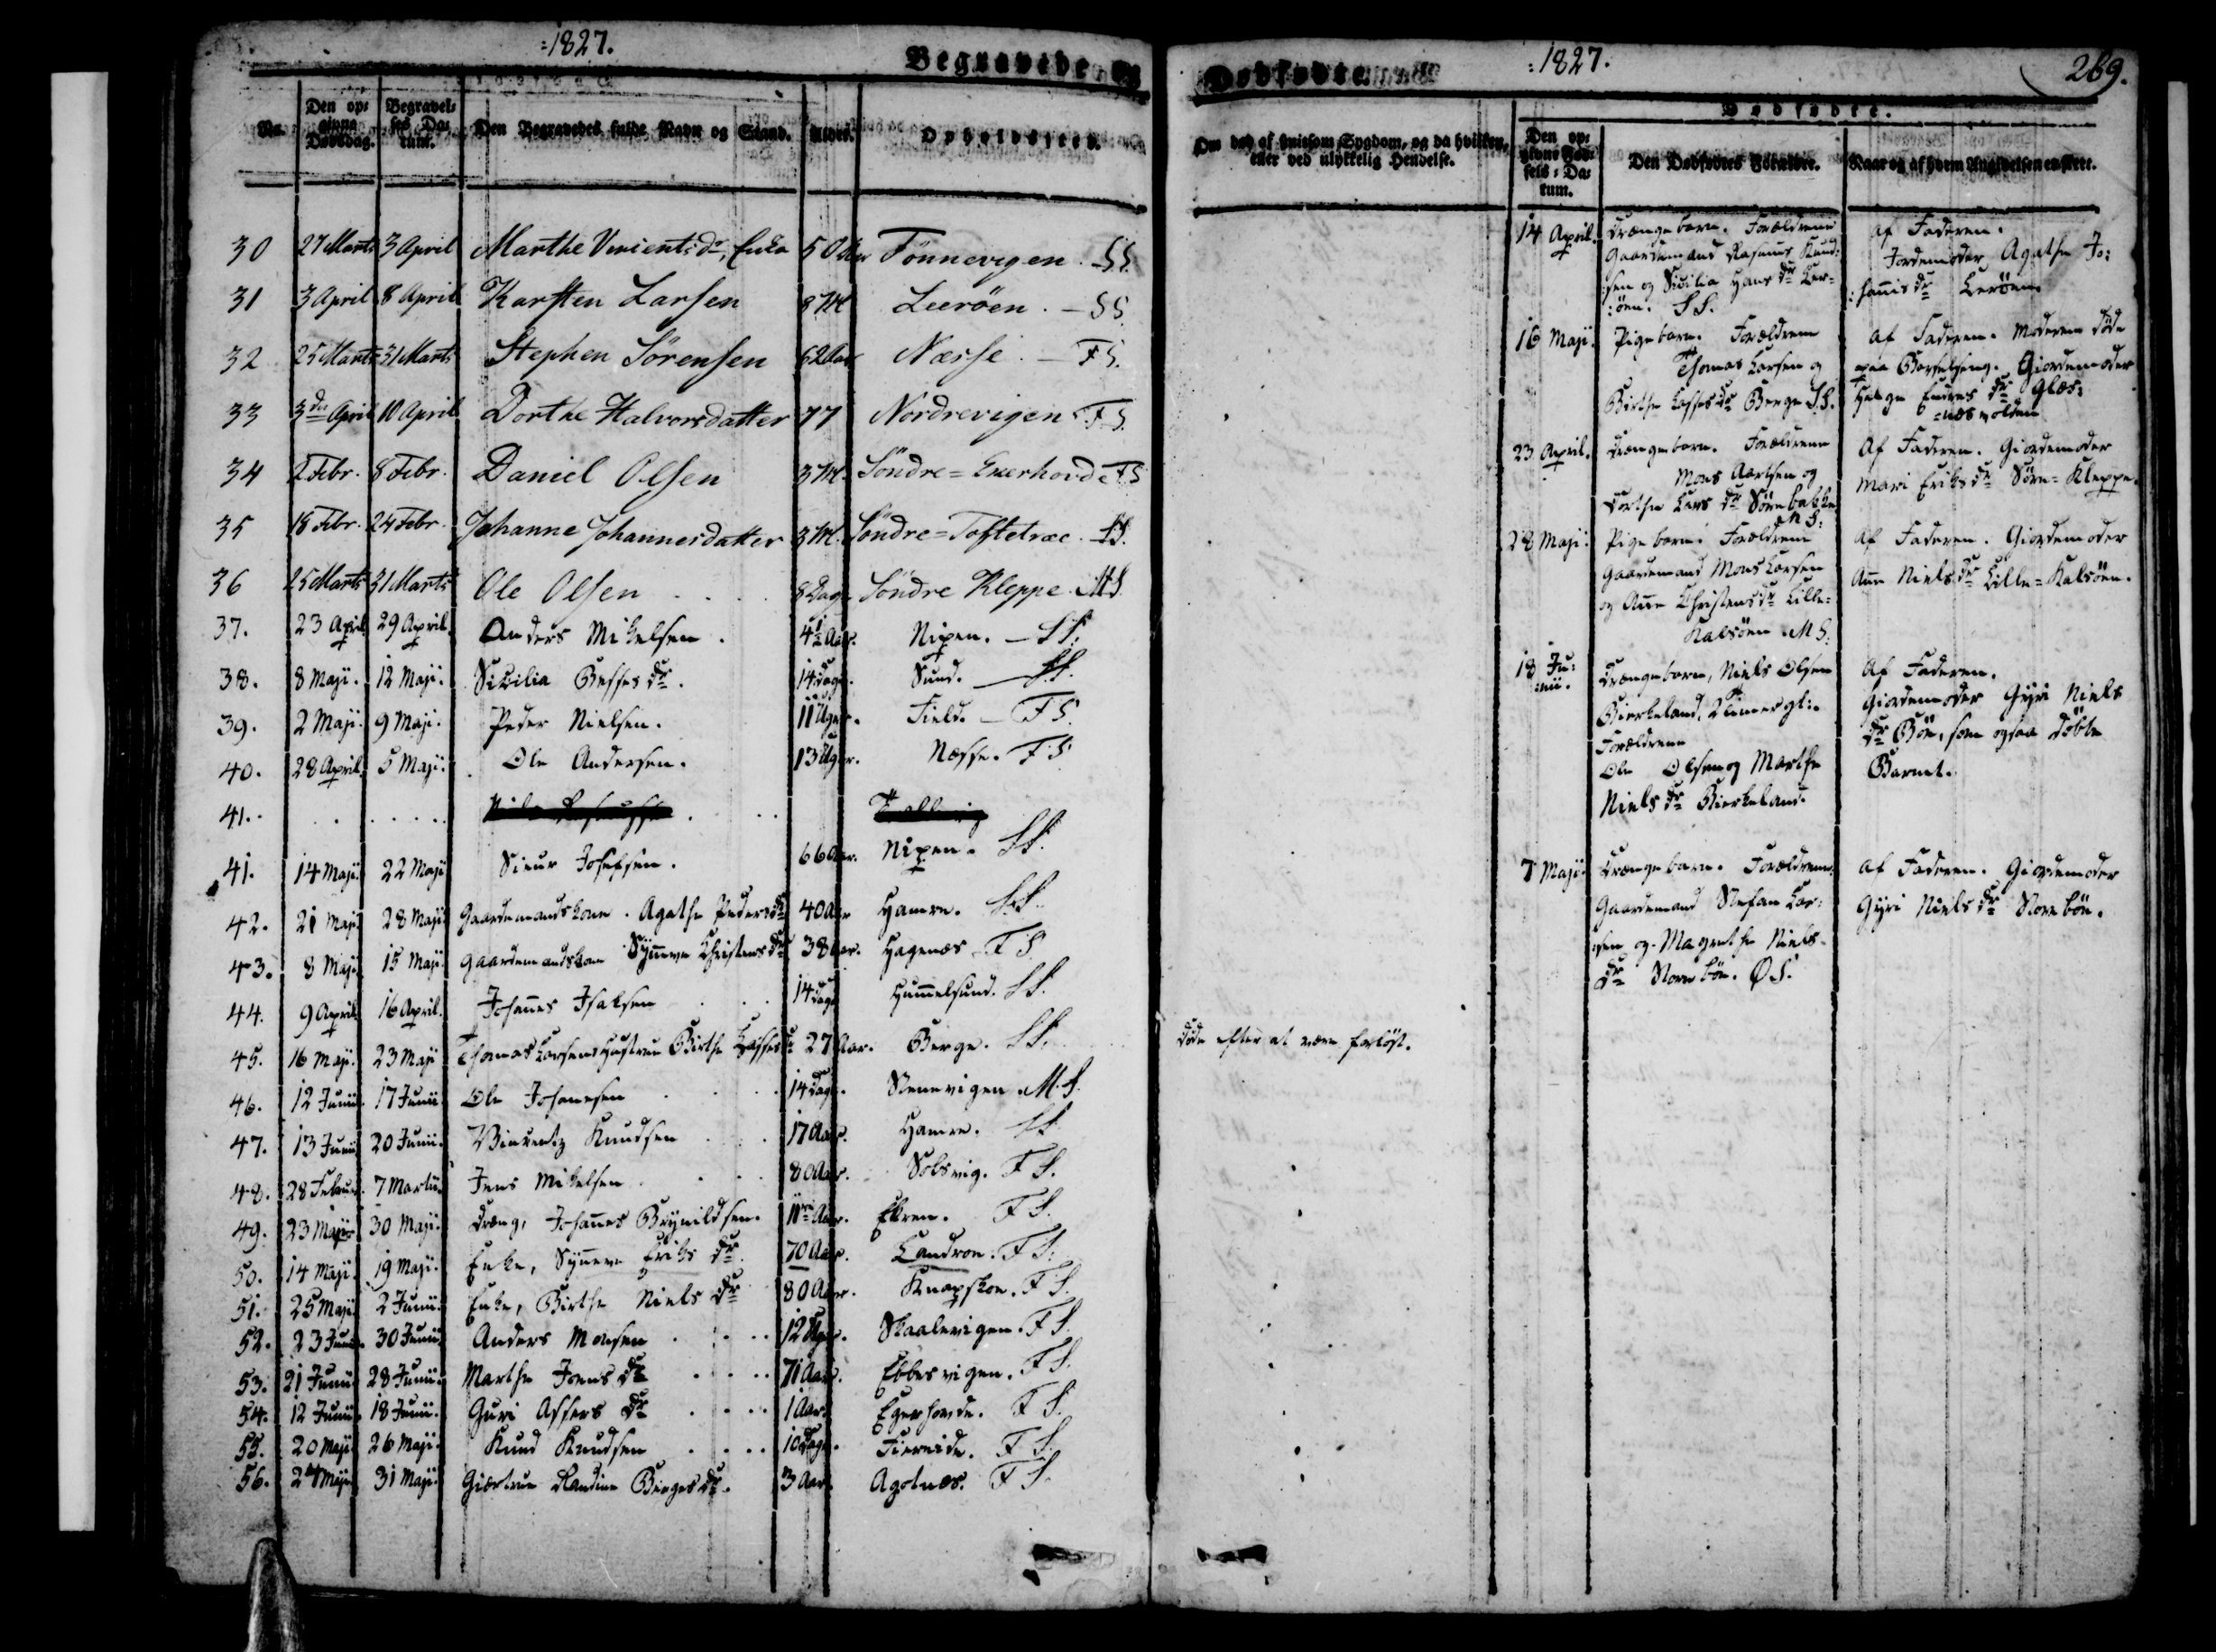 :1827.
Begravede og
No.
Den opgivne Dødsdag.
Begravelses Datum.
Den Begravedes fulde Navn og Stand.
Alder.
Opholdssted.
30 27 Marts 3 April Marthe Vincentsdr, Enke 50 Aar Tønnevigen. SS.
31 3 April 8 April Karsten Larsen 8 M Leerøen. - SS.
32 25 Marts 31 Marts Stephen Sørensen 62 Aar Næsse. - FS.
33 3die April 10 April Dorthe Halvorsdatter 77 Nordrevigen FS.
34 2 Febr. 8 Febr. Daniel Olsen 3 M. Søndre = Exerhovde FS
35 18 Febr. 24 Febr. Johanne Johannesdatter 3 M. Søndre = Toftetræe. SS.
36 25 Marts 31 Marts Ole Olsen 8 Dage Søndre Kleppe. MS.
37. 23 April 29 April. Anders Mikelsen. 4½ Aar. Nipen. - SS.
38. 8 Maji. 12 Maji. Sicilia Besses dr. 14 Dage. Sund. - SS.
39. 2 Maji. 9 Maji. Peder Nielsen. 11 Uger. Field. - FS.
40. 28 April. 5 Maji. Ole Andersen. 13 Uger. Næsse. FS
41.
41. 14 Maji. 22 Maji Siur Josefsen. 66 Aar. Nipen. SS.
42. 21 Maji 28 Maji Gaardemandskone. Agathe Peders dr 40 Aar Hamre. SS.
43. 8 Maji 15 Maji Gaardemandskone Synneve Christens dr 38 Aar. Hagenæs. FS
44. 9 April. 16 April. Johannes Isaksen 14 Dage Hummelsund. SS.
45. 16 Maji. 23 Maji Thomas Larsens Hustrue Birthe Lasses dr 27 Aar. Berge. SS.
46. 12 Junii. 17 Junii Ole Johannesen 14 Dage. Steenevigen. MS.
47. 13 Junii 20 Junii. Vincentz Knudsen 17 Aar. Hamre. SS
48. 28 Februar. 7 Martii. Jens Mikelsen 80 Aar. Solsvig. FS.
49. 23 Maji 30 Maji. Dreng, Johannes Brynildsen. 11 Aar. Ekren. FS.
50. 14 Maji. 19 Maji. Enke, Synneve Eriks dr. 70 Aar. Landroe. FS.
51. 25 Maji 2 Junii. Enke, Birthe Niels dr 80 Aar. Knapskoe. FS.
52. 23 Junii. 30 Junii. Anders Monsen 12 Uger. Skaalevigen. FS.
53. 21 Junii. 28 Junii. Marthe Jens dr 71 Aar. Ebbesvigen. FS.
54. 12 Junii. 18 Junii. Guri Assers dr 1 Aar. Egerhovde. FS.
55. 20 Maji 26 Maji. Knud Knudsen 10 Dage. Tiereide. FS.
56. 24 Maji 31 Maji. Giertrue Randine Børges dr. 3 Aar. Agotnæs. FS.
Dødfødte
:1827.
269.
Om død af smitsom Sygdom, og da hvilken, eller ved ulykkelig Hendelse.
Dødfødte.
Den opgivne Fødsels-Datum.
Den Dødfødtes Forældre.
Naar og af hvem Angivelsen er skeet.
14 April. Drengebarn. Forældrene
Gaardemand Rasmus Knud:
:sen og Sicilia Hans dr Ler-
:øen. SS.
Af Faderen.
Jordemoder Agathe Jo:
:hannis dr Lerøen.
16 Maji. Pigebarn. Forældrene
Thomas Larsen og
Birthe Lasses dr Berge SS.
Af Faderen. Moderen døde
paa Barselseng. Giordemoder
Helge Endres dr Glæs:
=næsvolden
23 April. Drengebarn. Forældrene
Mons Aartsen og
Dorthe Lars dr Sørebakke
MS.
Af Faderen. Giordemoder
Mari Eriks dr Søre=Kleppe.
28 Maji. Pigebarn. Forældrene
Gaardemand Mons Larsen
og Anne Christens dr Lille=
Kalsøen MS.
Af Faderen. Giordemoder
Anne Niels dr Lille=Kalsøen.
18 Ju:
:nii. Drengebarn, Niels Olsen
Birkeland,
Forældrene
Ole Olsen og Marthe
Niels dr Birkeland.
Af Faderen.
Giordemoder Gyri Niels
dr Bøe, som ogsaa døbte
Barnet.
7 Maji. Drengebarn. Forældrene
Gaardemand Stefan Lar:
:sen og Magrethe Niels
dr Storebøe. ØS.
Af Faderen. Giordemoder
Gyri Niels dr Storebøe.
døde efter at være forløst.